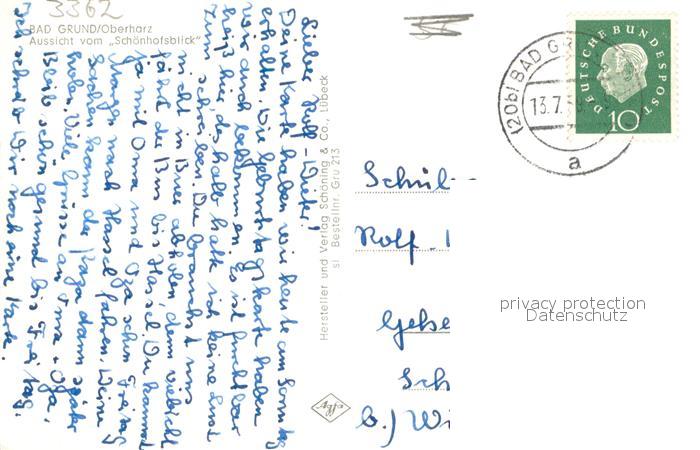 3362
BAD GRUND/Oberharz
Aussicht vom „Schönhofsblick"
Lieber Rolf-Dieter!
Deine Karte haben wir heute am Sonntag
erhalten. Die Geburtstagskarte haben
wir auch bekommen. Es ist furchtbar
heiß hier deshalb hatte ich keine Lust
zum schreiben. Du brauchst uns
nicht in Buer abholen, denn vielleicht
fährt die Bm bis Hassel. Du kannst
ja mit Oma und Opa schon Freitag
Morgen nach Hassel fahren. Deine
Sachen kann der Papa dann später
holen. Viele Grüsse an Oma + Opa,
Bleib schön gesund bis Freitag.
Ich schreib Dir noch eine Karte.
Hersteller und Verlag Schöning & Co., Lübeck
sl Bestellnr. Gru 213
Agfa
DEUTSCHE BUNDESPOST
10
(20b) BAD GR
13.7.5
a
Schül
Rolf -
Gelse
Sch
b./ Wi
privacy protection
Datenschutz